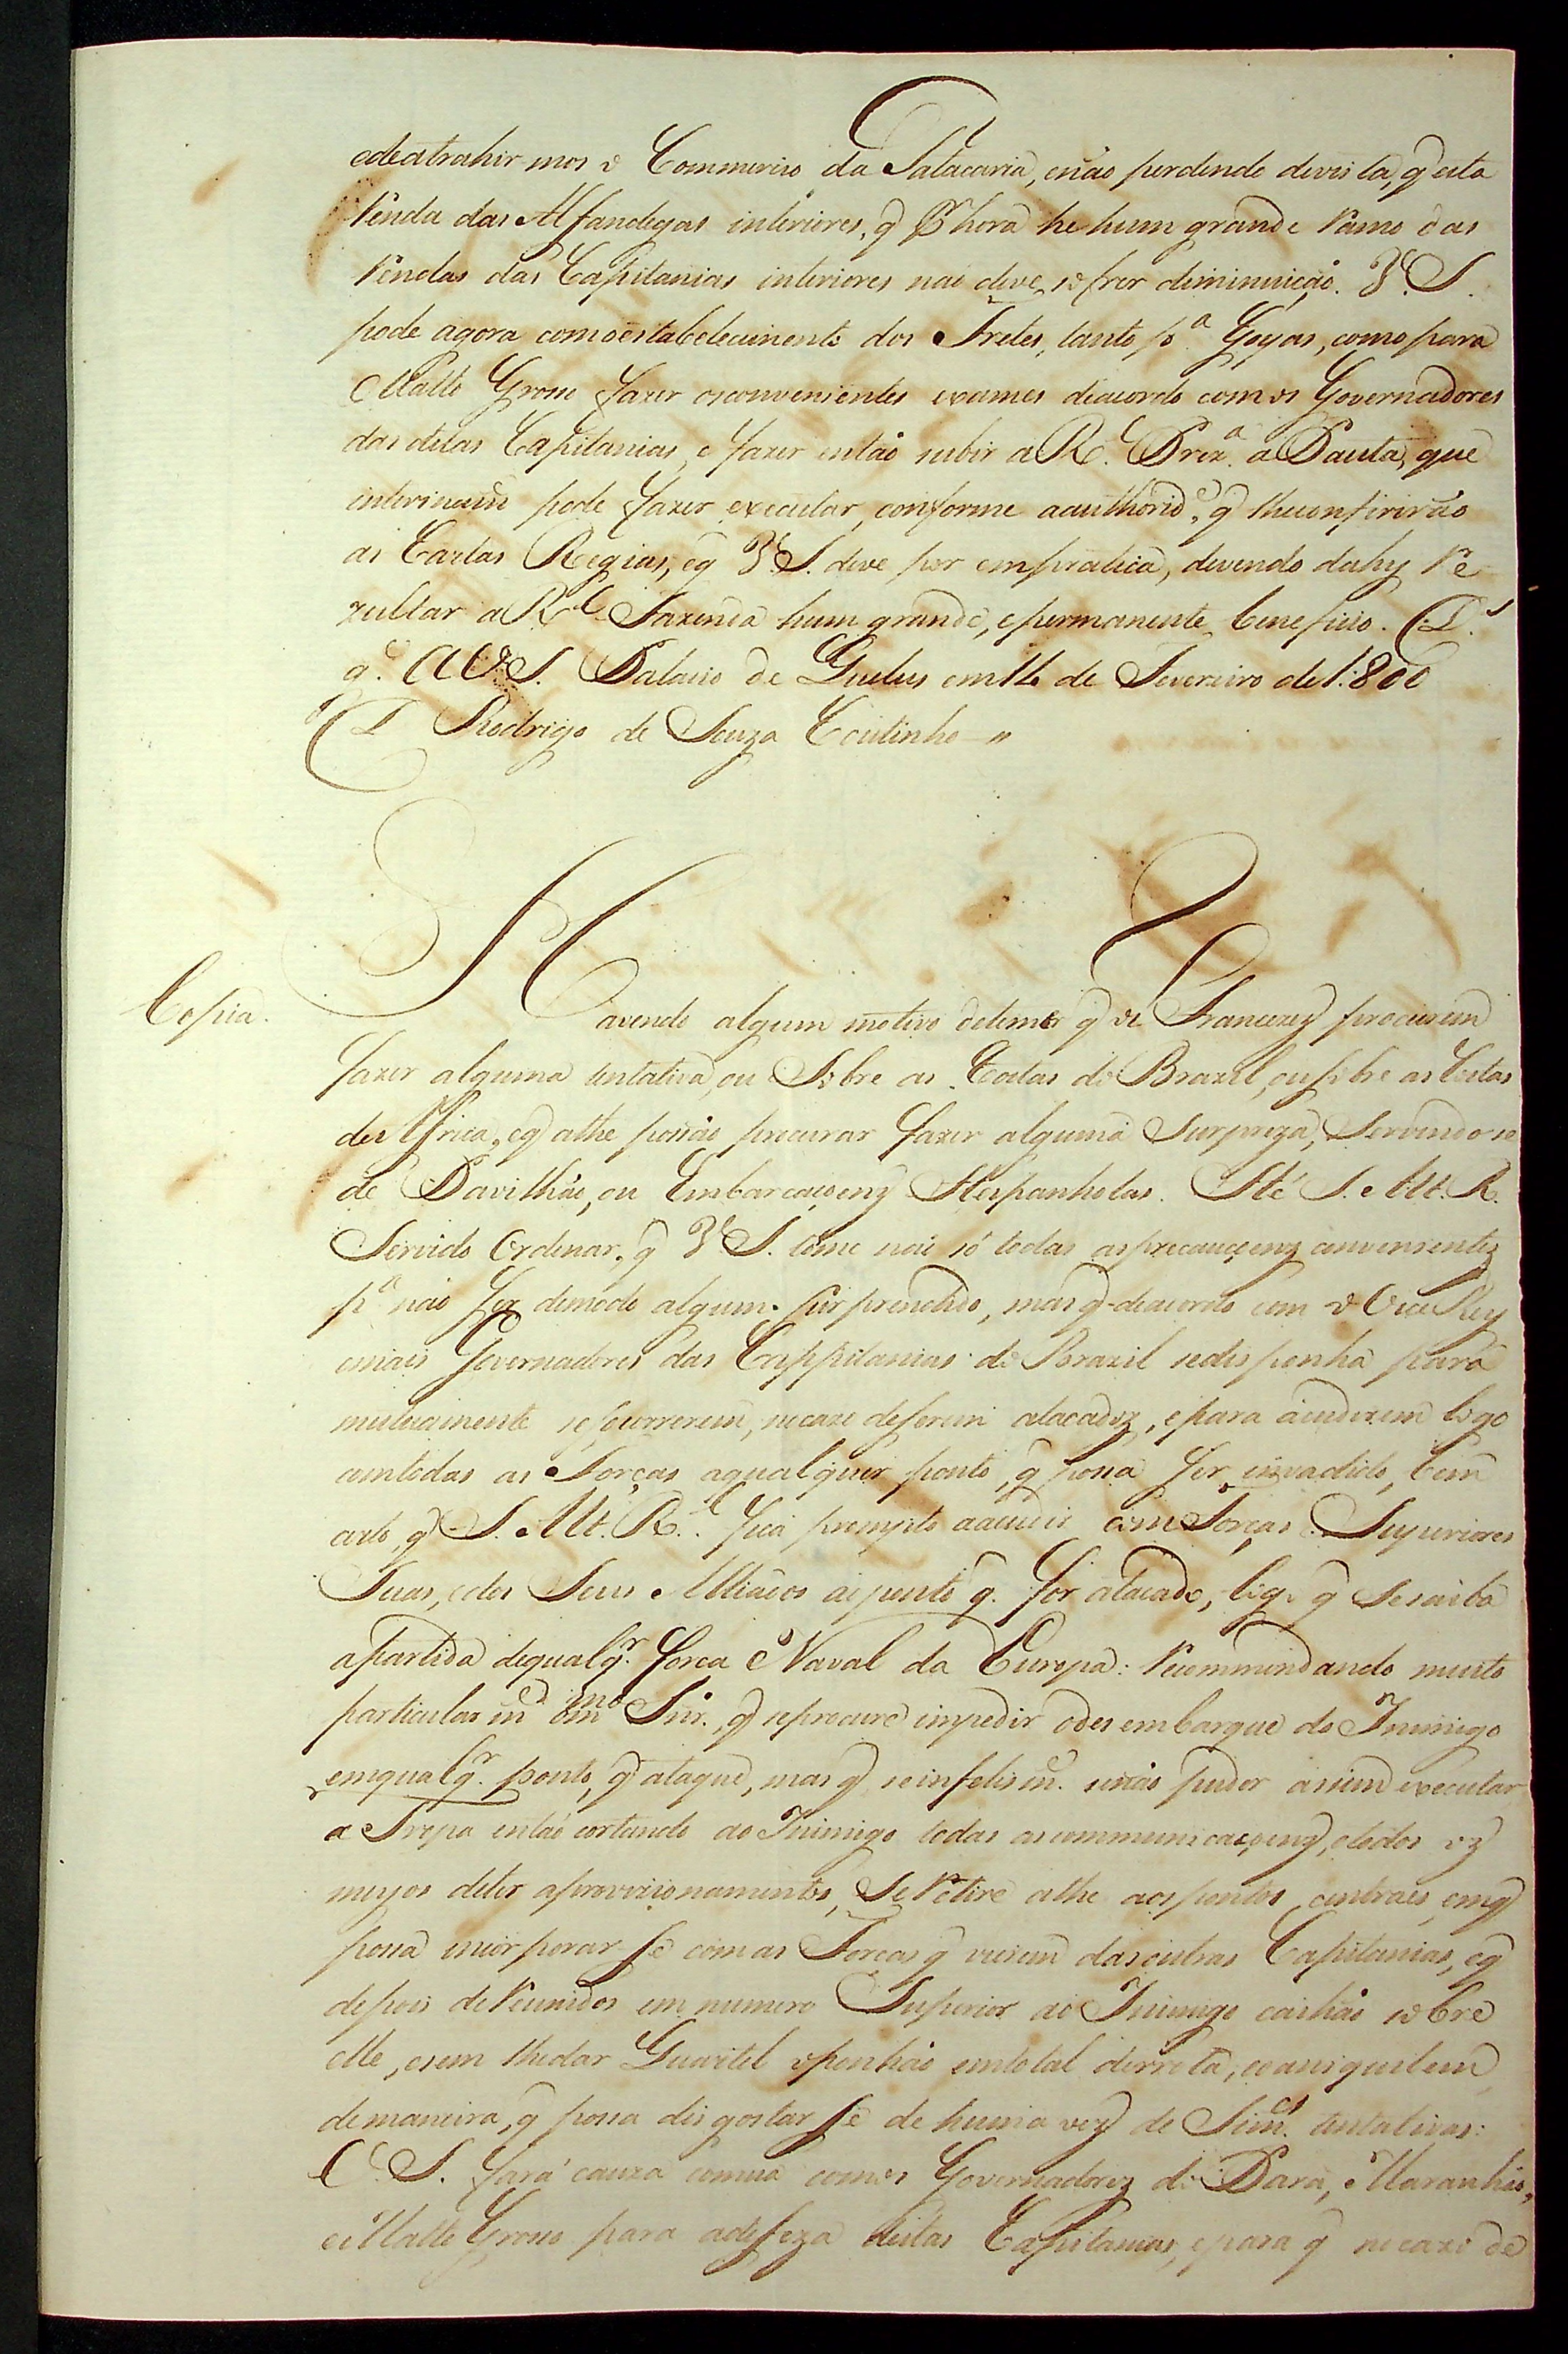 edeatrahirmos o Commercio da Patacaria, enão perdendo devista, q̃ esta
Renda das Alfandegas interiores, q̃ P hora he hum grande Ramo das
Rendas das Capitanias interiores naõ deve sofrer diminuiçaõ. V. S.
pode agora comoestabelecimento dos Fretes, tanto p.ª Goyas, como para
Matto Grosso fazer osconvenientes exames deacordo com os Governadores
das ditas Capitanias, e fazer então subir a R. Prez.ª a Pauta, que
interinam̃ pode fazer executar, conforme aauthorid.e, q̃ lheconfirirão
as Cartas Regias, eq̃ V. S. deve por empratica, devendo dahy Re
zultar a R.l Fazenda hum grande, epermanente beneficio. D.s
g.e a V. S. Palacio de Quelus em 14 de Fevereiro de 1:800
D Rodrigo de Souza Coutinho "
Copia.
Havendo algum motivo detemer q̃ os Francezes procurem
fazer alguma tentativa, ou Sobre as Costas do Brazil, ousobre as Costas
de Africa, eq̃ athe possão procurar fazer alguma Surpreza, Servindose
de Pavilhão, ou Embarcaçoens Hespanholas. Hé S. Alt. R.
Servido Ordenar, q̃ V. S. tome naõ só todas asprecauçoens convenientes
p.ª não ser demodo algum surprendido, mas q̃ deacordo com o Vice Rey
emais Governadores das Cappitanias do Brazil sedisponha para
mutuamente sesocorrerem, nocazo deserem atacados, epara acudirem logo
comtodas as Forças aqualquer ponto, q̃ possa ser invadido, bem
certo, q̃ S. Alt. R.l fica prompto aacudir com Forças Superiores
Suas, edos Seus Alliados aoponto q. for atacado, logo q̃ Sesaiba
apartida dequalq.r força Naval da Europa: Recommendando muito
particularm.e o m.mo Snr., q̃ seprocure impedir odesembarque do Inimigo
emqualq.r ponto, q̃ ataque, mas q̃ seinfelism.e senão puder assim executar
a Tropa então cortando ao Inimigo todas ascommunicaçoens, etodos os
meyos deter aprovizionamentos, SeRetire athe aospontos centraes, emq̃
possa incorporarse comas Forças q̃ vierem dasoutras Capitanias, eq̃
depois deReunidos em numero Superior ao Inimigo caihão sobre
elle, esem lhedar Quartel oponhão emtotal derrota, eoaniquilem
demaneira, q̃ possa desgostarse de huma vez de Sim.es tentativas:
V. S. fará cauza comua comos Governadores do Pará, Maranhão,
eMatto Grosso para adefeza destas Capitanias, epara q̃ nocazo de